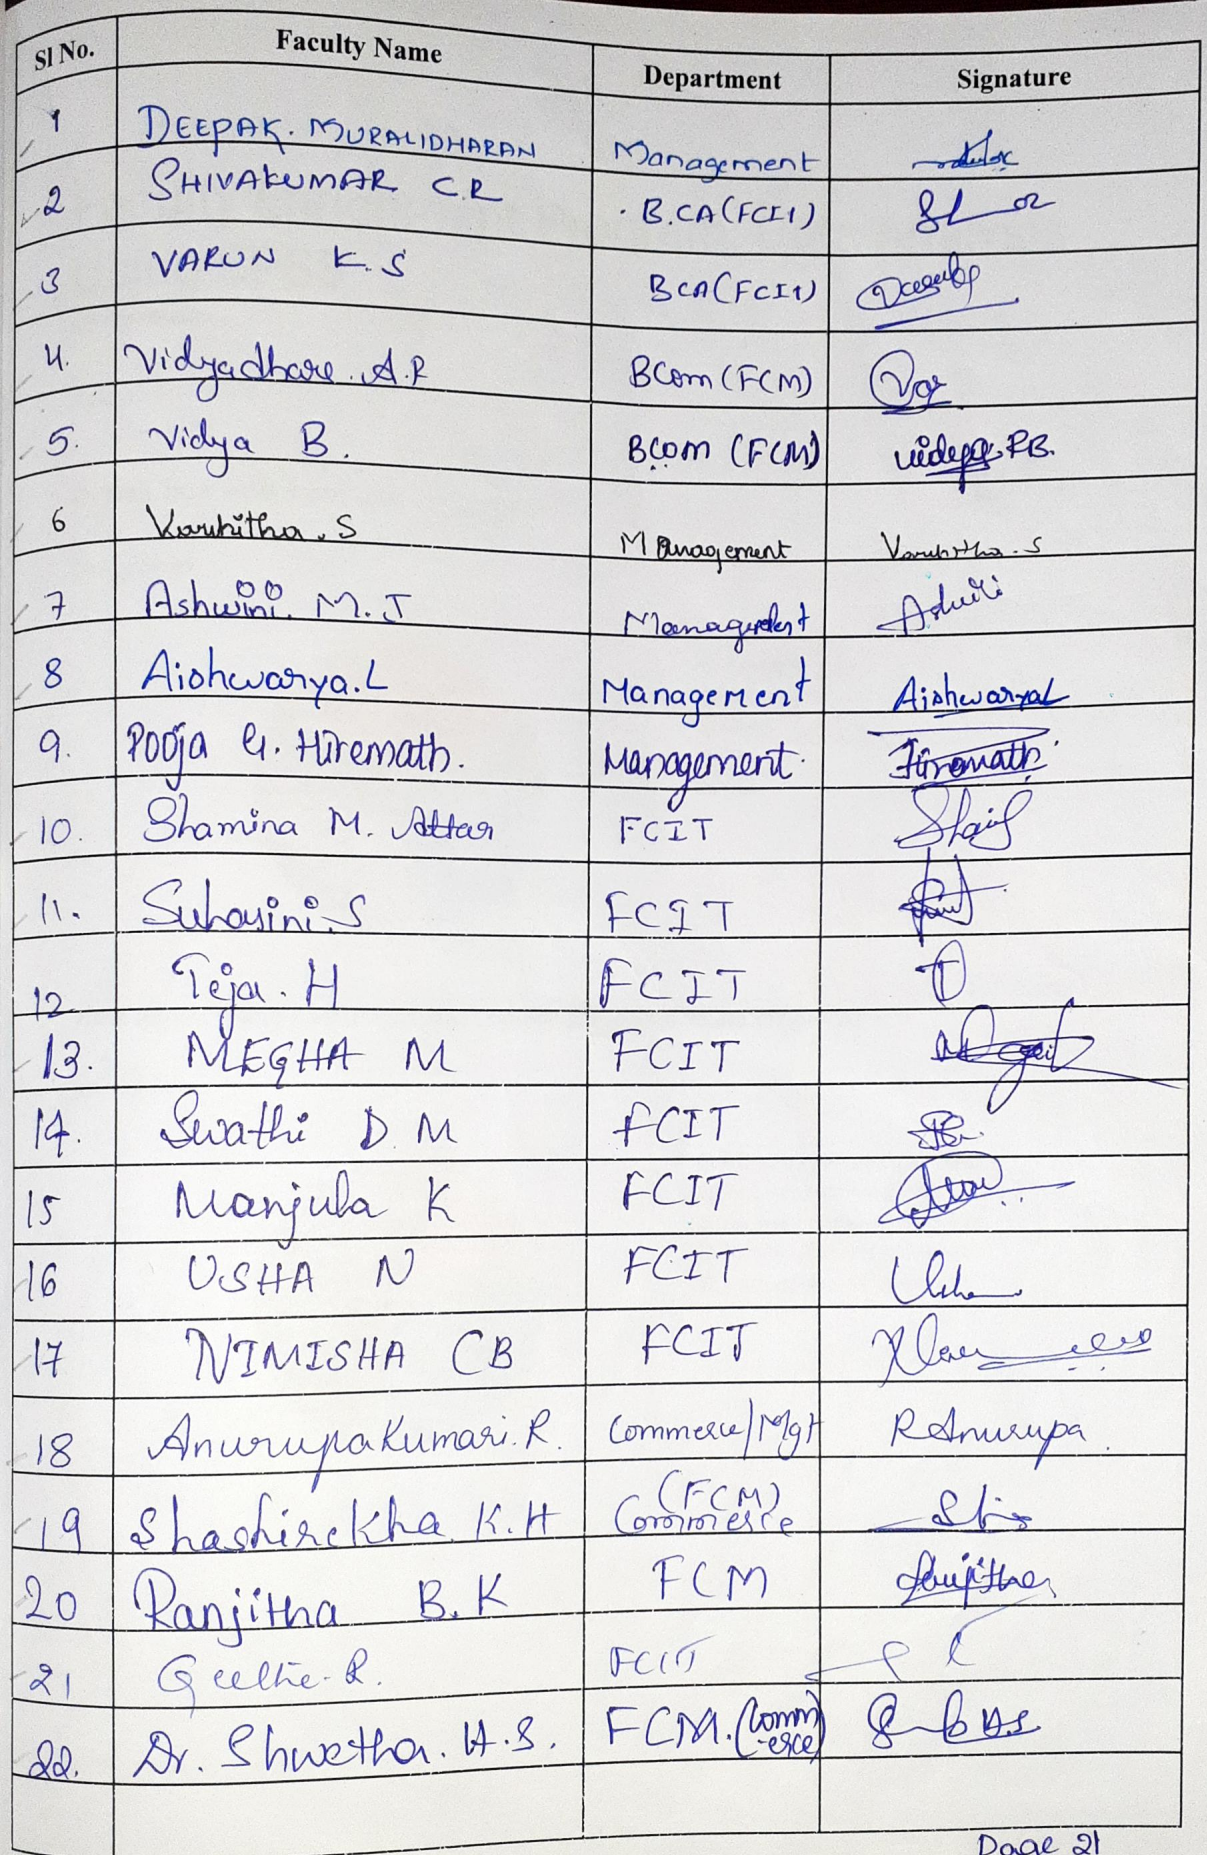 Sl No. Faculty Name Department Signature
1 DEEPAK. MURALIDHARAN Management
2 SHIVAKUMAR C.R B.CA (FCIT)
3 VARUN K.S BCA (FCIT)
4. Vidyadhare. A.R BCom (FCM)
5. Vidya B. BCOM (FCM) vidya P.B.
6 Varshitha. S Management Varshitha. S
7 Ashwini. M.J Management Ashwini
8 Aishwarya.L Management AishwaryaL
9. Pooja G. Hiremath. Management. Hiremath
10. Shamina M. Attar FCIT
11. Suhasini.S FCIT
12 Teja. H FCIT
13. MEGHA M FCIT
14. Swathi D M FCIT
15 Manjula K FCIT
16 USHA N FCIT Usha
17 NIMISHA CB FCIT
18 Anurupa Kumari. R. Commerce/Mgt R Anurupa
19 Shashirekha K.H (FCM)
Commerce
20 Ranjitha B.K FCM Ranjitha
21 R. FCIT
22. Dr. Shwetha. H.S. FCM. (Comm
-erce)
Page 21